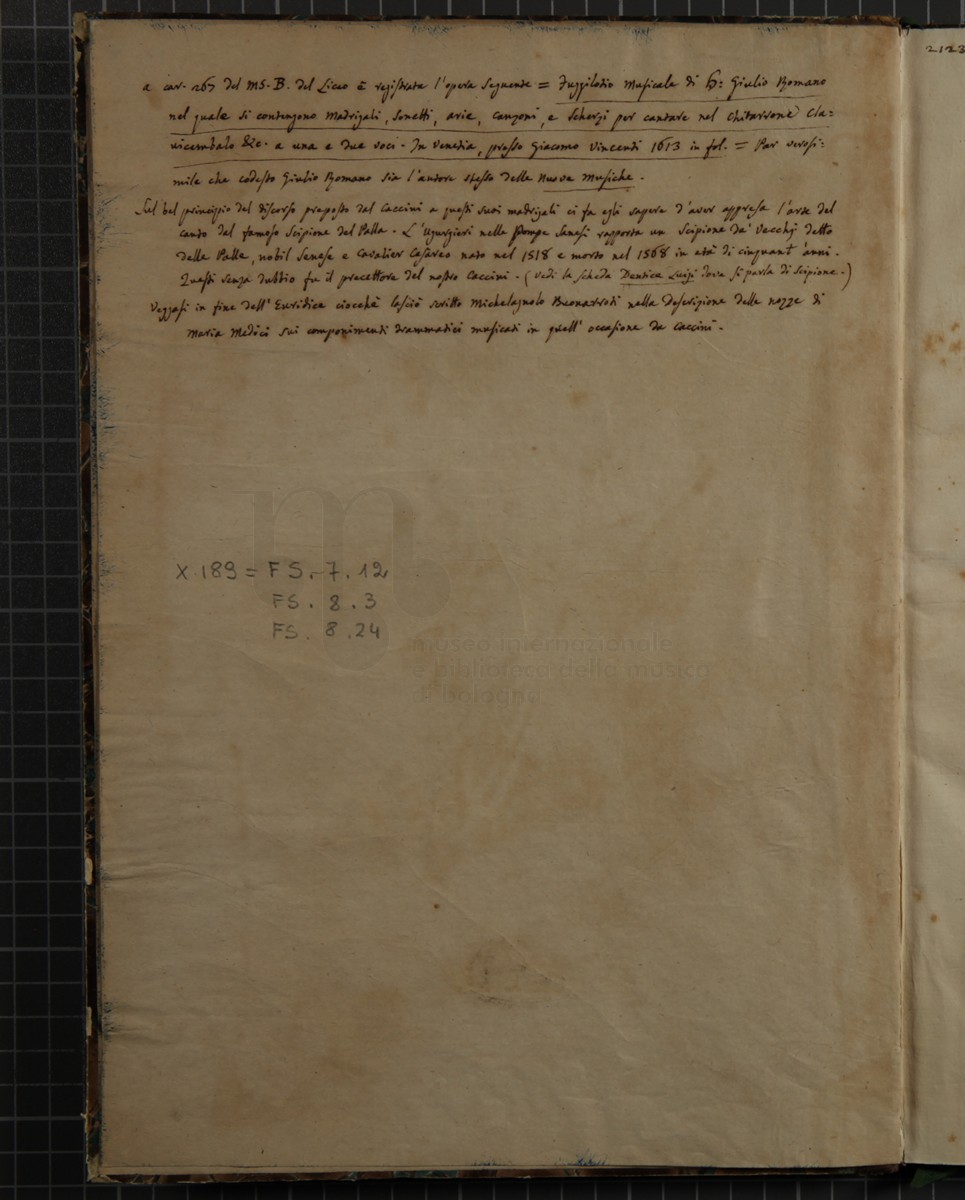 2123
a car. 267 del MS. B. del Liceo è registrata l'opera seguente = Fuggilotio Musicale di D: Giulio Romano
nel quale si contengono Madrigali, Sonetti, arie, canzoni, e Scherzi per cantare nel Chitarrone Cla=
vicembalo &c. a una e due voci. In Venetia, presso Giacomo Vincenti 1613 in fol. = Par verosi=
mile che codesto Giulio Romano sia l'autore stesso delle Nuove Musiche.
Sul bel principio del discorso preposto dal Caccini a questi suoi madrigali ci fa egli sapere d'aver appresa l'arte del
canto dal famoso Scipione del Palla. L'Ugurgieri nelle Pompe Sanesi rapporta un Scipione de' Vecchj detto
delle Palle, nobil Senese e Cavalier Cesareo nato nel 1518 e morto nel 1568 in età di cinquant'anni.
Questi senza dubbio fu il precettore del nostro Caccini. (Vedi la scheda Dentice Luigi dove si parla di Scipione.)
Veggasi in fine dell'Euridice ciocchè lasciò scritto Michelagnolo Buonarroti nella Descrizione delle nozze di
Maria Medici sui componimenti drammatici musicati in quell'occasione da Caccini.
X 189 = FS. 7. 12
FS. 8. 3
FS. 8. 24
museo internazionale
e biblioteca della musica
di bologna